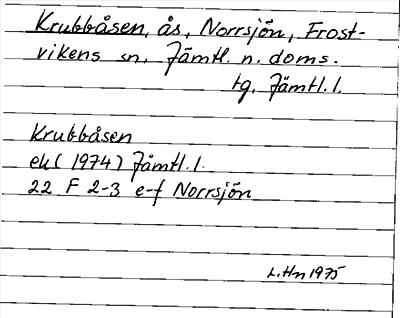 Krubbåsen, ås, Norrsjön, Frost-
vikens sn, Jämtl. n. doms.
tg, Jämtl. l.
Krubbåsen
ek (1974) Jämtl. l.
22 F 2-3 e-f Norrsjön
L.Hn 1975